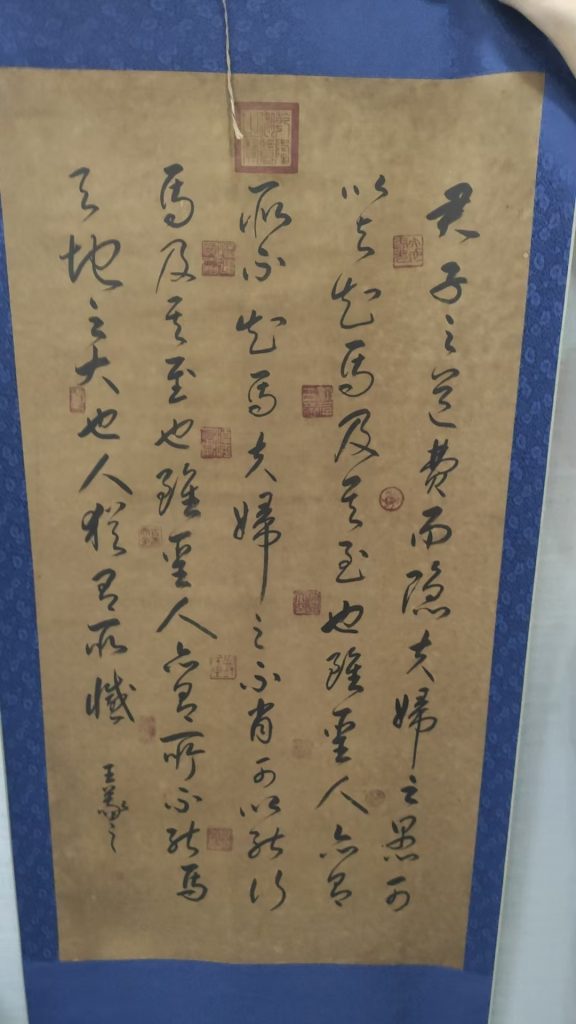 君子之道費而隱夫婦之愚可
以与知焉及其至也雖聖人亦有
所不知焉夫婦之不肖可以能行
焉及其至也雖聖人亦有所不能焉
天地之大也人猶有所憾
王羲之